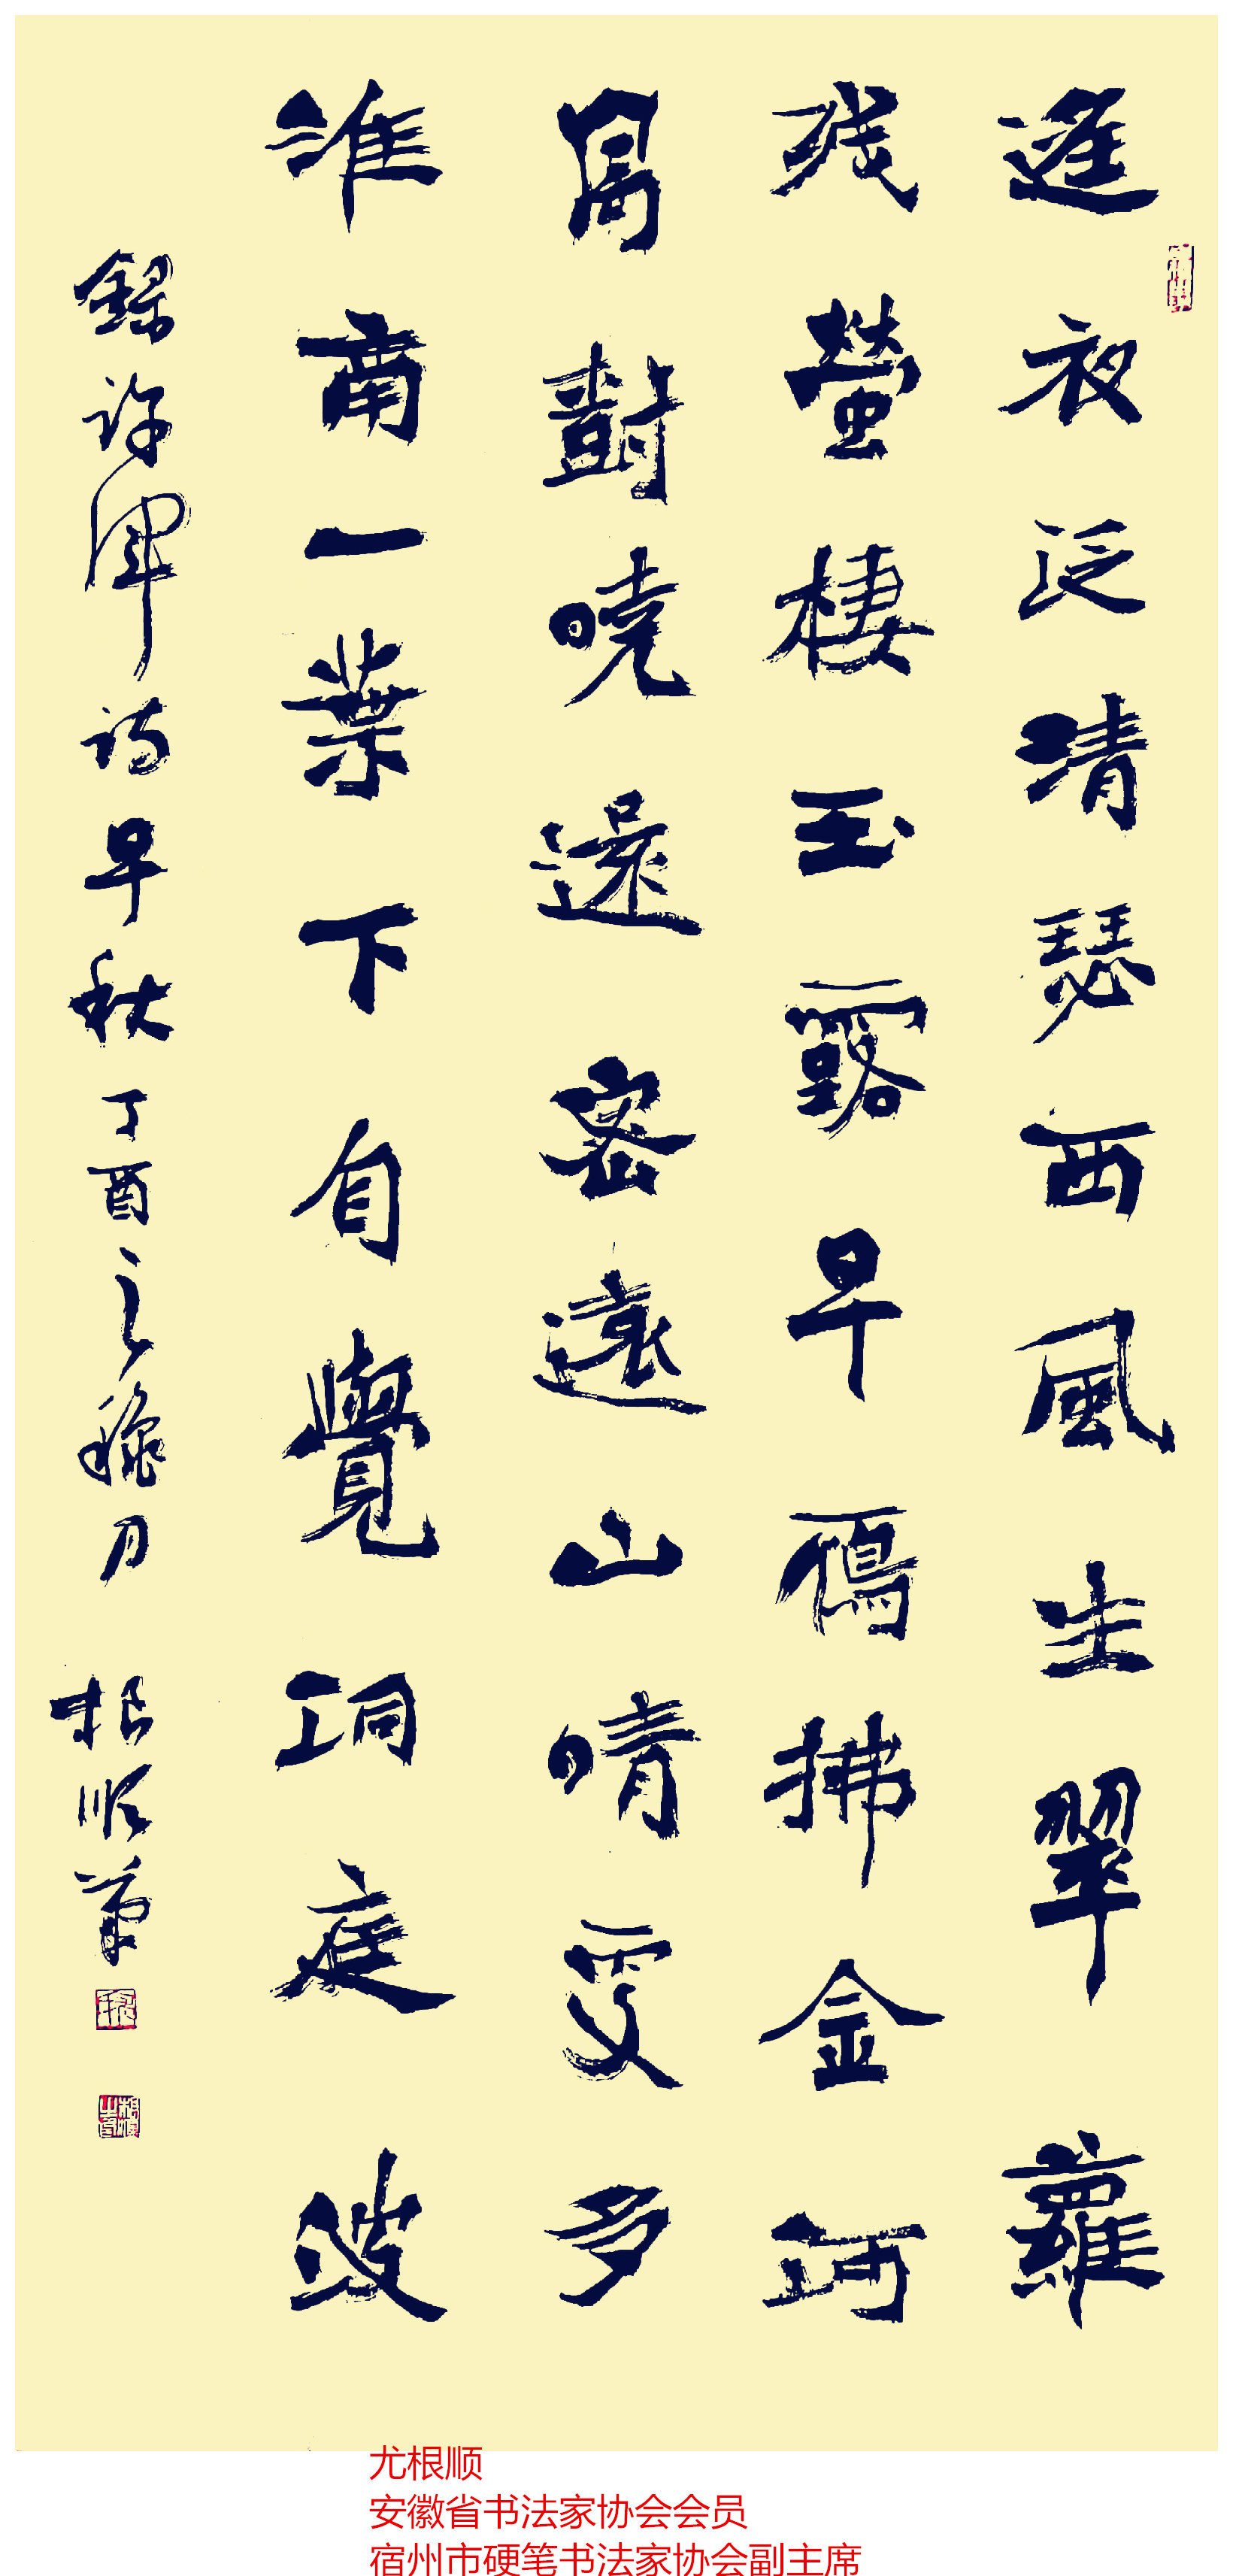 遥夜泛清瑟西風生翠蘿
残螢棲玉露早鴈拂金河
高樹曉還密遠山晴更多
淮南一葉下自覺洞庭波
錄许渾诗早秋丁酉之穐月 根顺筆
尤根顺
安徽省书法家协会会员
宿州市硬笔书法家协会副主席